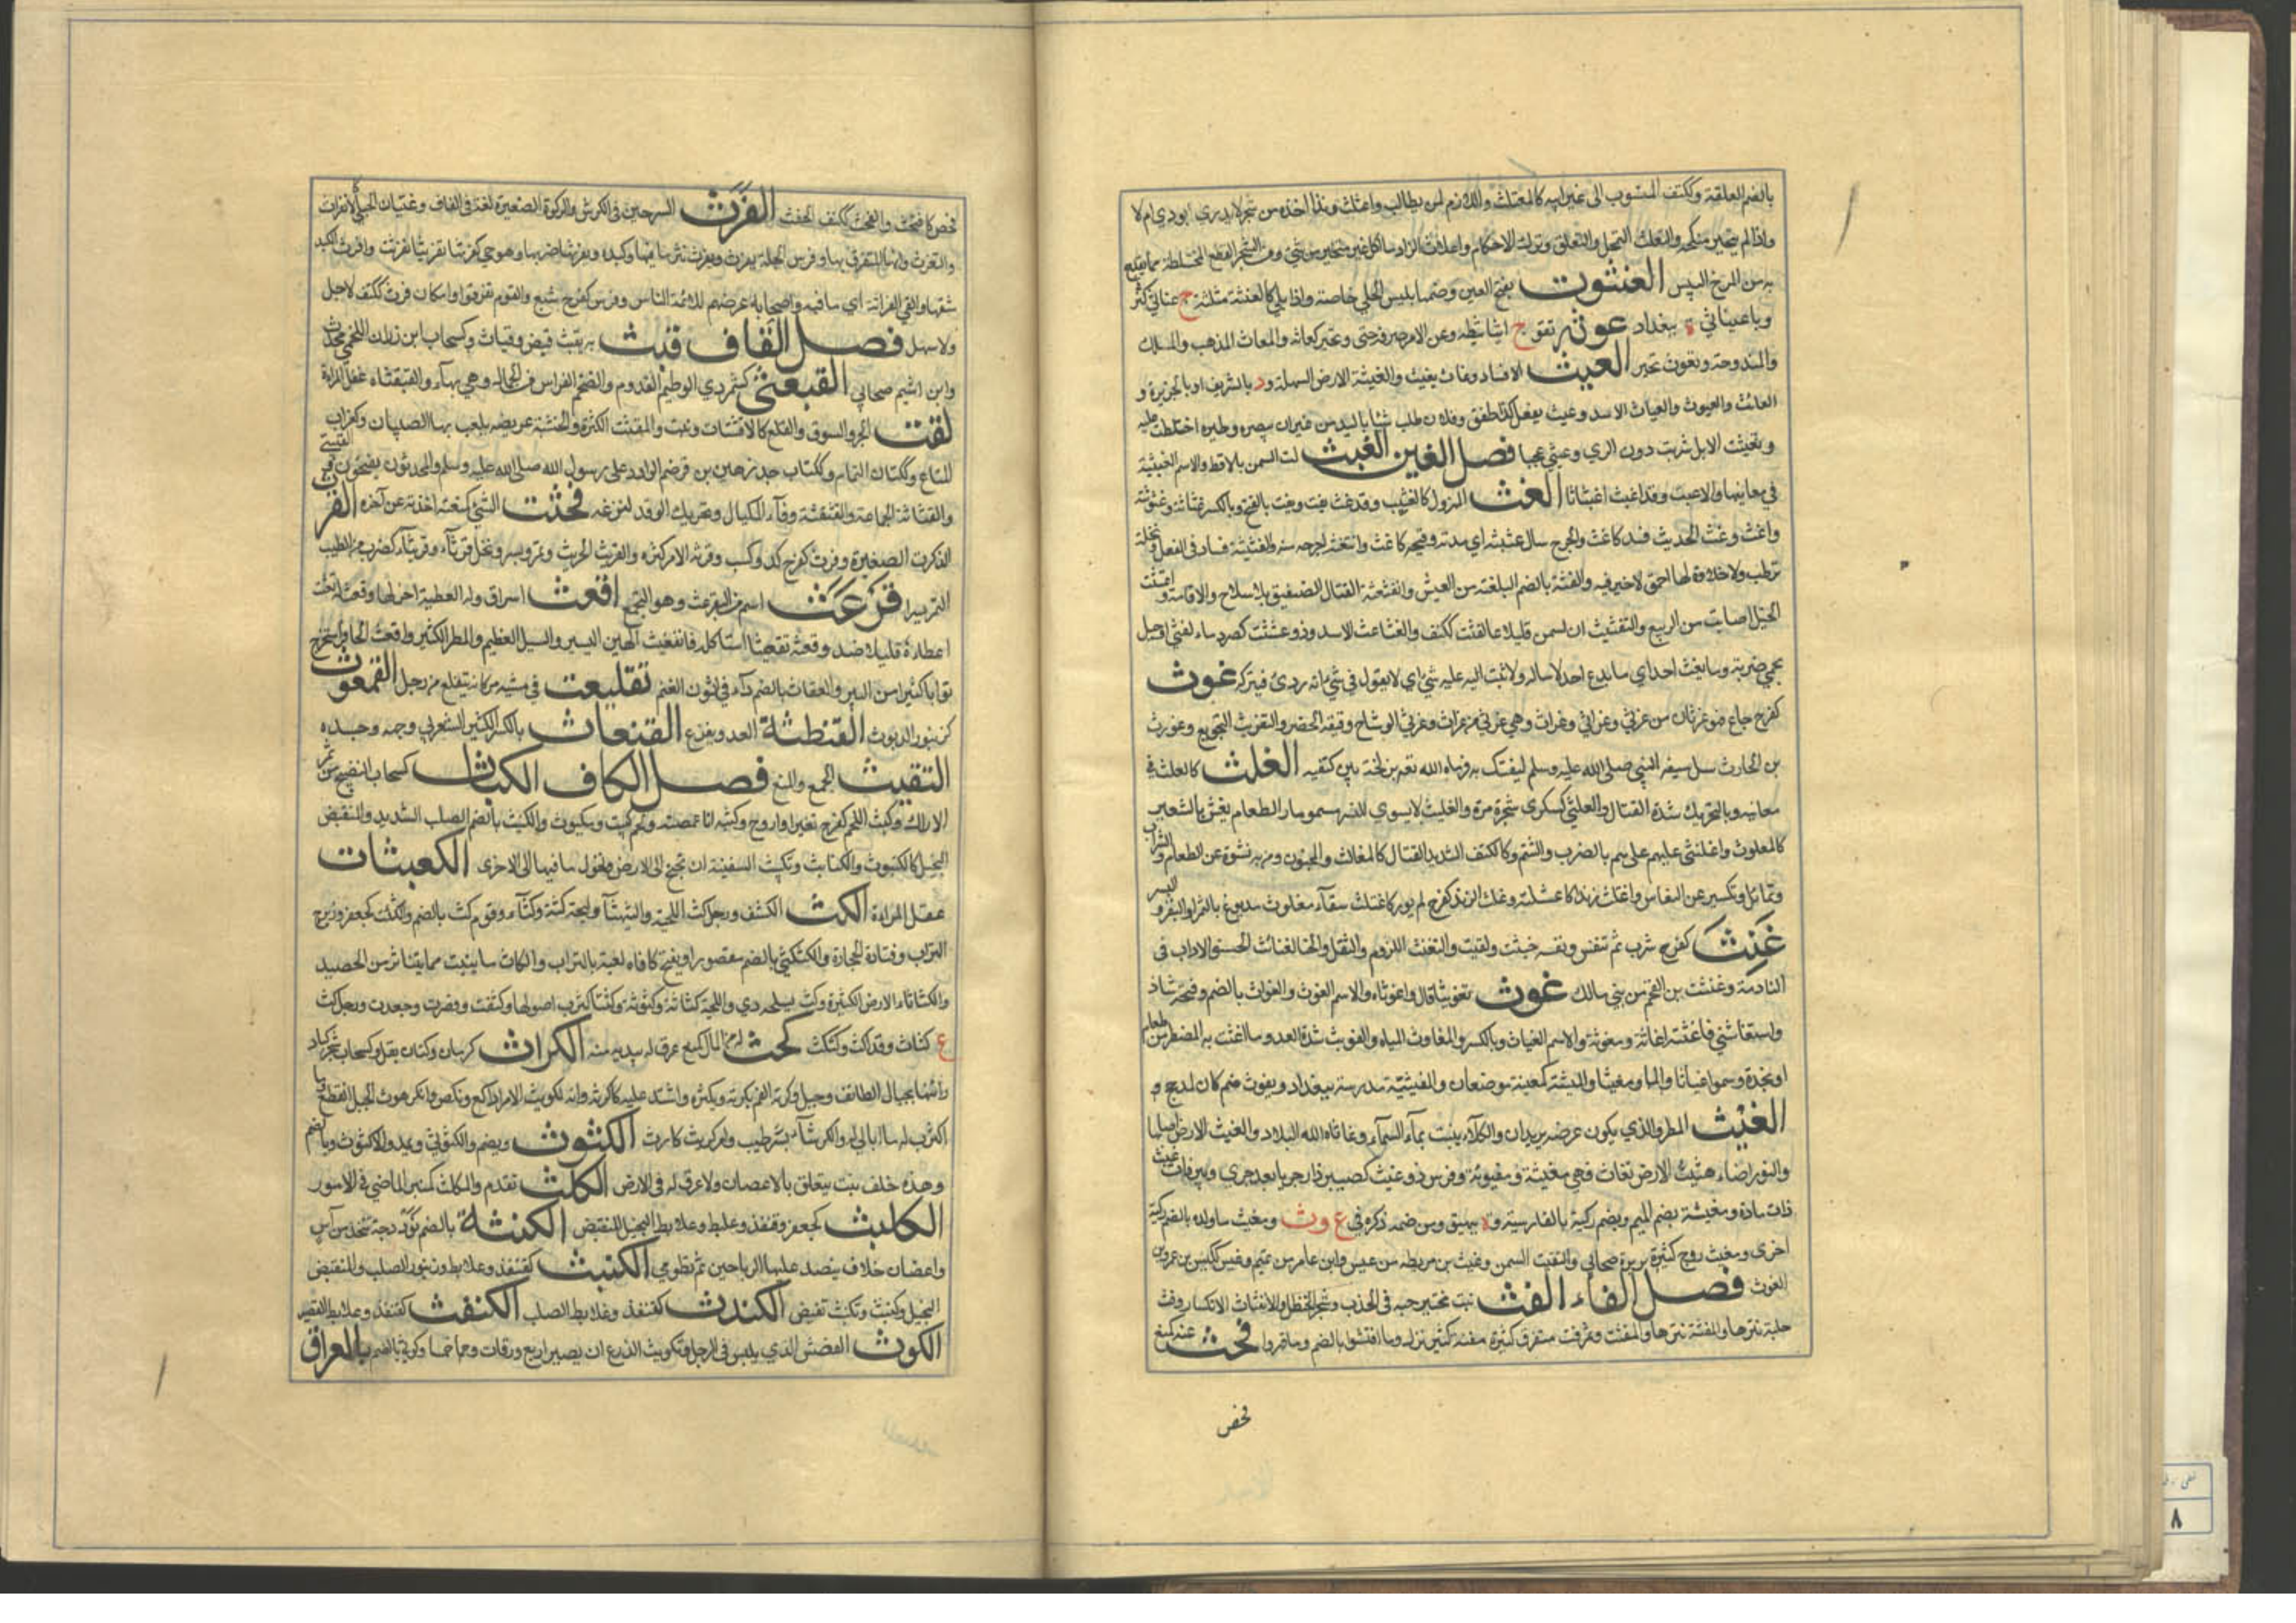 بالضم العلقة وككتف المنسوب الى غير ابيه كالمعتلث والملازم لمن يطالب واعتلث زندا اخذه من شجر لا يدري ايوري ام لا
واذا لم يتخير منكحه والتعلث التمحل والتعلق وترك الاحكام واعلاث الزاد ما اكل غير متخير من شيء ومن الشجر القطع المختلطة مما يقدح
به من المرخ اليبس العنثوث بفتح العين وضمها يبيس الحلي خاصة واذا بلي كالعنثة مثلثة ج عناثي
وباعيناثي ة ببغداد عوثه تعويثا ثبطه وعن الامر صرفه حتى تحير كعاثه والمعاث المذهب والمسلك
والمندوحة وتعوث تحير العيث الافساد وعاث يعيث والعيثة الارض السهلة ود بالشريف او بالجزيرة و
العائث والعيوث والعياث الاسد وعيث يفعل كذا طفق وفلان طلب شيئا باليد من غير ان يبصره وطيره اختلطت عليه
وتعيثت الابل شربت دون الري وعيثي عجبا فصل الغين الغبث لت السمن بالاقط والاسم الغبيثة
في معانيها والاغبث وقد اغبث اغبثاثا الغث المهزول كالغثيث وقد غث يغث ويغث بالفتح وبالكسر غثاثة وغثوثة
واغث وغث الحديث فسد كاغث والجرح سال غثيثه اي مدته وقيحه كاغث واستغثه اخرجه منه والغثيثة فساد في العقل ونخلة
ترطب ولا حلاوة لها واحمق لا خير فيه والغثة بالضم البلغة من العيش والغثغثة القتال الضعيف بلا سلاح والاقامة واغتثت
الخيل اصابت من الربيع والتغثيث ان تسمن قليلا قليلا وكتف والغثاغث الاسد وذو غثث كصرد ماء لغني او جبل
بحمى ضرية وما يغث احدا اي ما يدع احدا الا ساله ولا يغث عليه شيء اي لا يقول في شيء انه ردئ فيتركه غرث
كفرح جاع فهو غرثان من غرثى وغراثى وغراث وهي غرثى من غراث وغرثى الوشاح دقيقة الخصر والتغريث التجويع وغورث
بن الحارث سل سيف النبي صلى الله عليه وسلم ليفتك به فرماه الله بزلخة بين كتفيه الغلث كالعلث في
معانيه وبالتحريك شدة القتال والغلثى كسكرى شجرة مرة والغليث ما يسوى للنسر مسموما والطعام يغش بالشعير
كالمغلوث واغلنثى عليهم علاهم بالضرب والشتم وككتف الشديد القتال كالمغالث والمجنون ومن به نشوة عن الطعام والشراب
وتمايل وتكسر عن النعاس واغتلث زندا كاعتلثه وغلث الزند كفرح لم يور كاغتلث وسقاء مغلوث مدبوغ بالتمر او البسر و
غنث كفرح شرب ثم تنفس ونفسه خبثت ولقست والتغنث اللزوم والثقل والغناث الحسنو الاداب في
المنادمة وغنثث بن افصى من بني مالك غوث تغويثا قال واغوثاه والاسم الغوث والغواث بالضم وفتحه شاذ
واستغاثني فاغثته اغاثة ومغوثة والاسم الغياث بالكسر والمغاوث المياه والغويث شدة العدو وما اغثت به المضطر من طعام
او نجدة وسموا غياثا ومغيثا والمغيثة كمعينة موضعان والمغيثية مدرسة ببغداد ويغوث صنم كان لمذحج و
الغيث المطر والذي يكون عرضه بريدا والكلأ ينبت بماء السماء وغاث الله البلاد والغيث الارض اصابها
والنور اضاء وغيثت الارض تغاث فهي مغيثة ومغيوثة وفرس ذو غيث كصيب يزداد جريا بعد جري وبئر ذات غيث
ذات مادة ومغيثة بضم الميم ركية بالقادسية وة ببيهق ومن ضمه ذكره في غ وث ومغيث ماوان بالضم ركية
اخرى ومغيث زوج بريرة صحابي والتغيث السمن وغيث بن مريطة من عبس وابن عامر من تميم وغيث ككيس بن عمرو بن
الغوث فصل الفاء الفث نبت يختبز حبه في الجدب وشجر الحنظل والانفثاث الانكسار وفث
جلته نثرها والمفثة نثرها والمفث وتمر فث متفرق كثيرة مفثة كثير نزله وما افتثوا بالضم وما قهروا فحث عنه كمنع
فحص
فحص كافتحث والفحث ككتف الحفث الفرث السرجين في الكرش والركوة الصغيرة لغة في القاف وغثيان الحبلى كالانفراث
والتفرث وانها المتفرث بها وفرث الجلة يفرث ويفرث نثر ما فيها وكبده يفرثها ضربها وهو حي كفرثها تفريثا فانفرثت وافرث الكبد
شقها والقى الفراثة اي ما فيها واصحابه عرضهم للائمة الناس وفرث كفرح شبع والقوم تفرقوا ومكان فرث ككتف لا جبل
ولا سهل فصل القاف قبث به يقبث قبض وقباث كسحاب ابن رزين اللخمي محدث
وابن اشيم صحابي القبعثى كشمردى العظيم القدم والضخم الفراسن من الجمال وهي بهاء والقبعثاة عفل المراة
القث الجر والسوق والقلع كالاقتثاث ونبت والمقثث الكثرة والمقثة خشبة عريضة يلعب بها الصبيان وكغراب
المتاع وككتان النمام وككتاب جد زهير بن قرضم الوافد على رسول الله صلى الله عليه وسلم والمحدثون يفتحون
والقثاثة الجماعة والقثقثة وفاء المكيال وتحريك الوتد لتنزعه قحثت الشيء كمنعته اخذته عن اخره القرث
الركوة الصغيرة وقرث كفرح كد وكسب وقرثه الامر كرثه والقريث الجريث وتمر وبسر ونخل قرثاء وقريثاء لضرب من اطيب
التمر بسرا قرعث اسم من التقرعث وهو التجمع اقعث اسرف وله العطية اجزلها وقعث له
اعطاه قليلا ضد وقعثه تقعيثا استأصله فانقعث والقعيث الهين اليسير والسيل العظيم والمطر الكثير واقتعث الحافر استخرج
ترابا كثيرا من البئر والقعاث بالضم داء في انوف الغنم تقلعث في مشيه مر كانه يتقلع من وحل القمعوث
كزنبور الديوث القنطثة العدو بفزع القنعاث بالكسر الكثير الشعر في وجهه وجسده
التقيث الجمع والمنع فصل الكاف الكباث كسحاب النضيج من ثمر
الاراك وكبث اللحم كفرح تغير او اروح وكبثته انا غممته ولحم كبيث ومكبوث والكنبث بالضم الصلب الشديد والمنقبض
البخيل كالكنبوث والكنابث وتكبيث السفينة ان تجنح الى الارض وتحول ما فيها الى الاخرى الكعبثات
عفل المراة الكث الكثيف ورجل كث اللحية وكثيثها ولحية كثة وكثاء وقوم كث بالضم والكثكث كجعفر وزبرج
التراب وفتات الحجارة والكثكثى بالضم مقصورا ويفتح كافاه لعبة بالتراب والكاث ما ينبت مما يتناثر من الحصيد
والكثاثاء الارض الكثيرة وكث بسلحه رمى واللحية كثاثة وكثوثة وكثثا كثرت اصولها وكثفت وقصرت وجعدت ورجل كث
ج كثاث وقد اكث وكثكث كحث له من المال كمنع غرف له بيديه منه الكراث كرمان وكتان بقل وكسحاب شجر كبار
رايتها بجبال الطائف وجبل وكرثه الغم يكرثه ويكرثه واشتد عليه كاكرثه وانه لكريث الامر اذا كع ونكص وانكرث الحبل انقطع وما
اكترث له ما ابالي به والكريثاء بسر طيب وامر كريث كارث الكشوث ويضم والكشوثى ويمد والاكشوث بالضم
وهذه خلف نبت يتعلق بالاغصان ولا عرق له في الارض الكلث تقدم والمكلث كمنبر الماضي في الامور
الكلبث كجعفر وقنفذ وعلبط وعلابط البخيل المنقبض الكنثة بالضم نوردجة تتخذ من آس
واغصان خلاف ينضد عليها الرياحين ثم تطوى الكنبث كقنفذ وعلابط وزنبور الصلب والمنقبض
البخيل وكنبث وتكنبث تقبض الكندث كقنفذ وعلابط الصلب الكنفث كقنفذ وعلابط القصير
الكوث القفش الذي يلبس في الرجل وتكويث الزرع ان يصير اربع ورقات وخمسا وكوثى بالضم بالعراق
٨